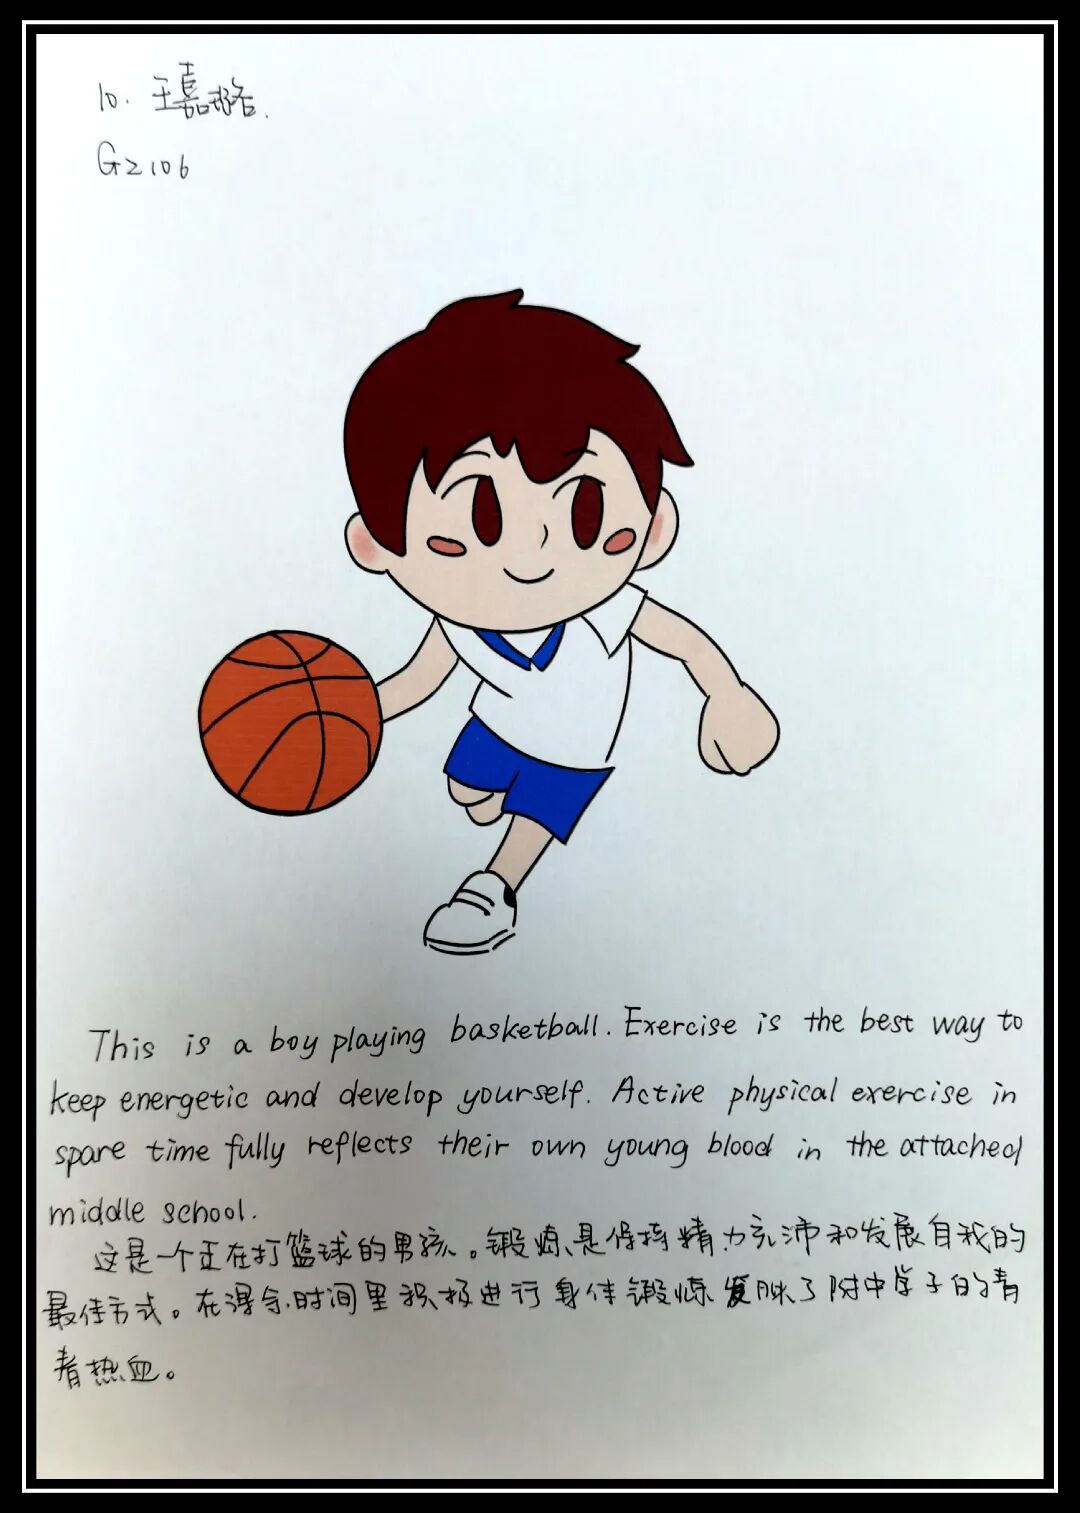 10. 王嘉璐.
G2106
This is a boy playing basketball. Exercise is the best way to
keep energetic and develop yourself. Active physical exercise in
spare time fully reflects their own young blood in the attached
middle school.
这是一个正在打篮球的男孩。锻炼是保持精力充沛和发展自我的
最佳方式。在课余时间里积极进行身体锻炼 了附中学子的青
春热血。